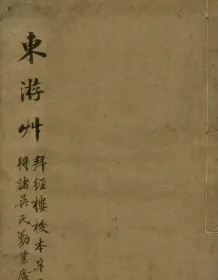 東游艸
拜經樓校本辛
得諸吳氏勤業廬